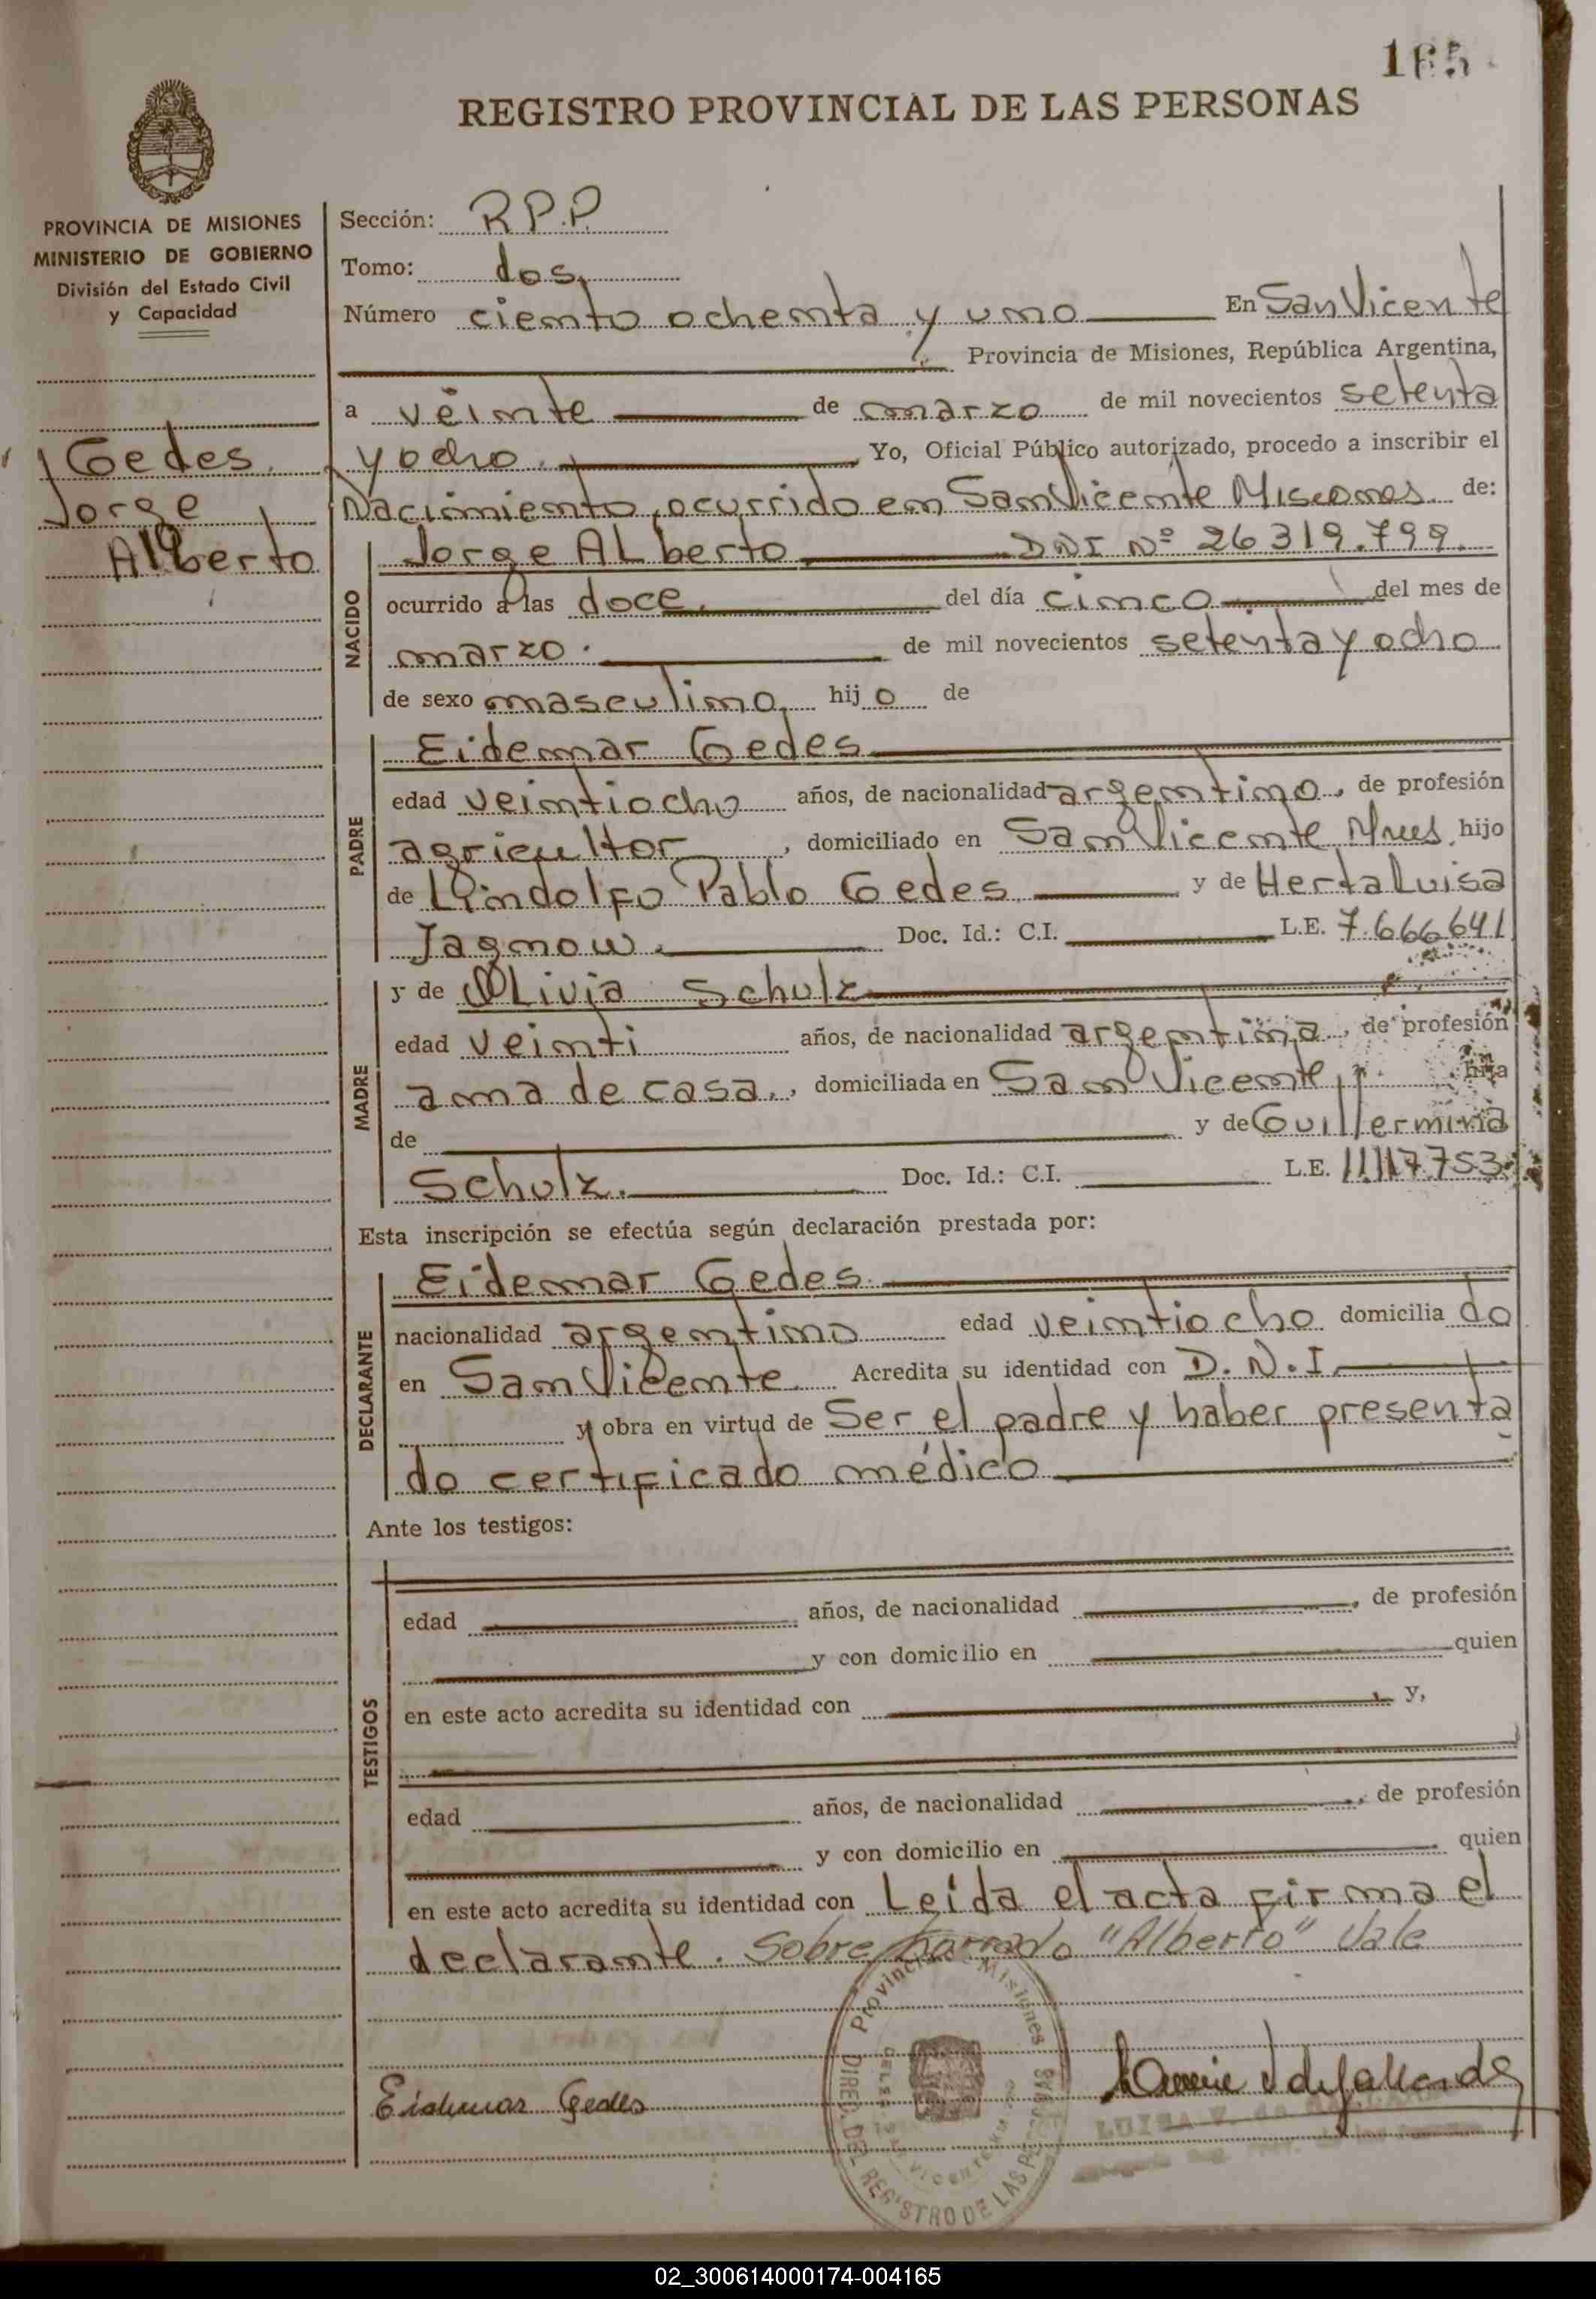 165
REGISTRO PROVINCIAL DE LAS PERSONAS
PROVINCIA DE MISIONES
MINISTERIO DE GOBIERNO
División del Estado Civil
y Capacidad
Gedes
Jorge
Alberto
Sección: R.P.P.
Tomo: dos
Número ciento ochenta y uno En San Vicente
Provincia de Misiones, República Argentina,
a veinte de marzo de mil novecientos setenta
y ocho. Yo, Oficial Público autorizado, procedo a inscribir el
Nacimiento, ocurrido en San Vicente Misiones de:
NACIDO
Jorge Alberto DNI Nº 26.319.799.
ocurrido a las doce. del día cinco del mes de
marzo. de mil novecientos setenta y ocho
de sexo masculino, hijo de
PADRE
Eidemar Gedes
edad veintiocho años, de nacionalidad argentino, de profesión
agricultor, domiciliado en San Vicente Mnes, hijo
de Lindolfo Pablo Gedes y de Herta Luisa
Jagnow. Doc. Id.: C.I. L.E. 7.666641
MADRE
y de Olivia Schulz
edad veinti años, de nacionalidad argentina, de profesión
ama de casa, domiciliada en San Vicente, hija
de y de Guillermina
Schulz. Doc. Id.: C.I. L.E. 11.117.753
Esta inscripción se efectúa según declaración prestada por:
DECLARANTE
Eidemar Gedes.
nacionalidad argentino edad veintiocho domiciliado
en San Vicente. Acredita su identidad con D.N.I.
y obra en virtud de Ser el padre y haber presenta
do certificado médico
Ante los testigos:
TESTIGOS
edad años, de nacionalidad , de profesión
y con domicilio en quien
en este acto acredita su identidad con y,
edad años, de nacionalidad , de profesión
y con domicilio en quien
en este acto acredita su identidad con Leída el acta firma el
declarante. Sobre borrado "Alberto" Vale
Provincia de Misiones
DIREC. DEL REGISTRO DE LAS PERSONAS
Eidemar Gedes
LUISA V. de
02_300614000174-004165